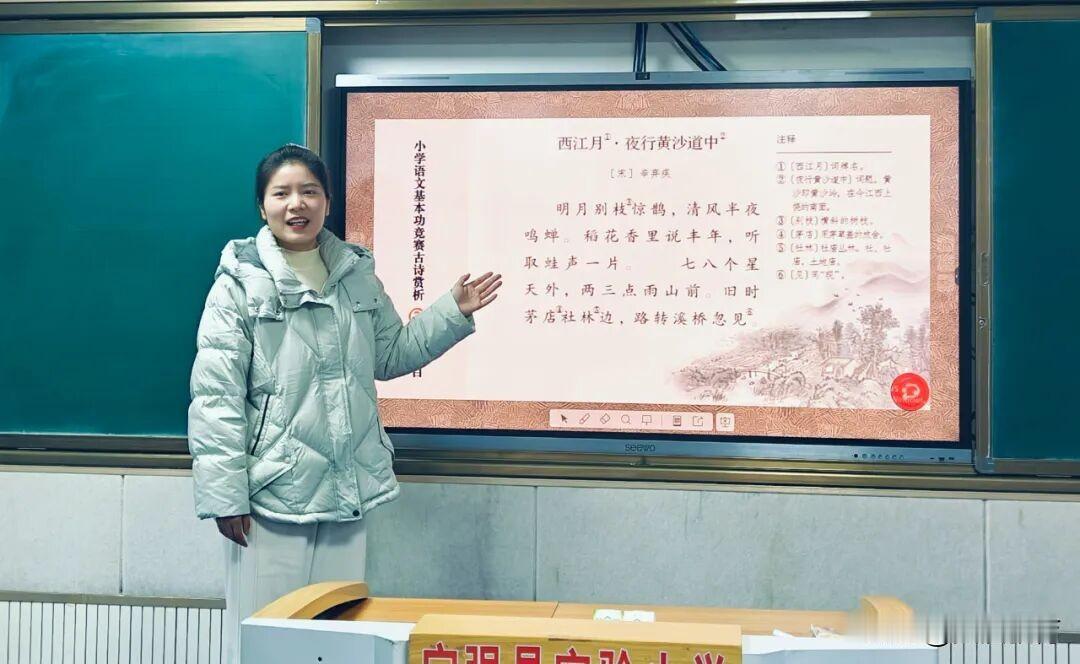 小学语文基本功竞赛古诗赏析
日
西江月①·夜行黄沙道中②
[宋] 辛弃疾
明月别枝③惊鹊，清风半夜
鸣蝉。稻花香里说丰年，听
取蛙声一片。 七八个星
天外，两三点雨山前。旧时
茅店④社林⑤边，路转溪桥忽见⑥
注释
①〔西江月〕词牌名。
②〔夜行黄沙道中〕词题。黄
沙即黄沙岭，在今江西上
饶的南面。
③〔别枝〕横斜的树枝。
④〔茅店〕用茅草盖的旅舍。
⑤〔社林〕社庙丛林。社，社
庙，土地庙。
⑥〔见〕同“现”。
seewo
宁强县实验小学